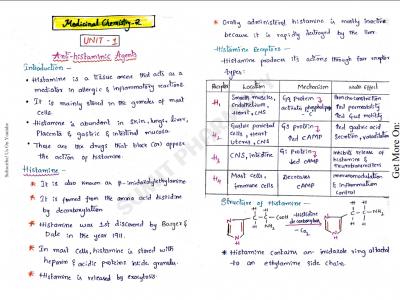 Medicinal Chemistry-2
UNIT - 1
Anti-histaminic Agents
Introduction -
• Histamine is a tissue amine that acts as a
mediator in allergic & inflammatory reactions.
• It is mainly stored in the granules of mast
cells.
• Histamine is abundant in skin, lungs, liver,
Placenta & gastric & intestinal mucosa.
• These are the drugs that block (or) oppose
the action of histamine.
Histamine -
* It is also known as β-imidazolylethylamine
* It is formed from the amino acid histidine
by decarboxylation
* Histamine was 1st discovered by Barger &
Dale in the year 1911.
* In mast cells, histamine is stored with
heparin & acidic proteins inside granule.
* Histamine is released by exocytosis.
* Orally administered histamine is mostly inactive
because it is rapidly destroyed by the liver
Histamine Receptors -
Histamine produces its actions through four receptor
types:
Receptor Location Mechanism Main Effect
H1 Smooth muscles, endothelium, heart, CNS Gq Protein activate phospholipase Bronchoconstriction
↑ed permeability
↑ed gut motility
H2 Gastric parietal cells, heart uterus, CNS Gs protein ↑ed cAMP ↑ed gastric acid
Secretion, vasodilation
H3 CNS, intestine Gi Protein ↓ed cAMP Inhibits release of
histamine &
neurotransmitters
H4 Mast cells, immune cells Decreases cAMP immunomodulation
& inflammation
control
Structure of Histamine -
COOH
NH2
histidine
decarboxylase
-CO2
NH2
* Histamine contains an imidazole ring attached
to an ethylamine side chain.
Subscribed On Youtube
Get More On: